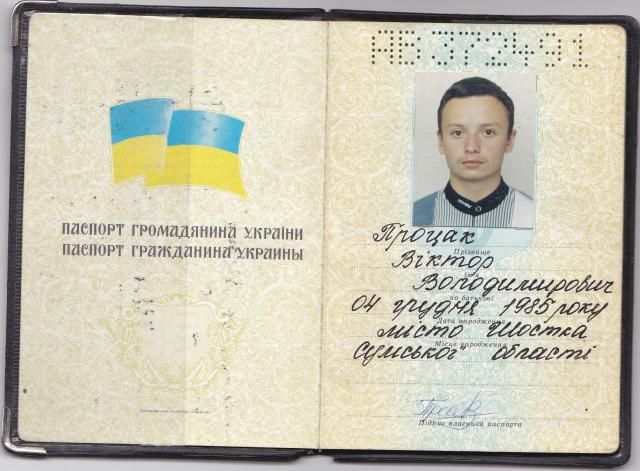 ПАСПОРТ ГРОМАДЯНИНА УКРАЇНИ
ПАСПОРТ ГРАЖДАНИНА УКРАИНЫ
АВ 372491
Процак
Прізвище
Віктор
Володимирович
по батькові
04 грудня 1985 року
Дата народження
місто Шостка
Місце народження
Сумської області
Підпис власника паспорта